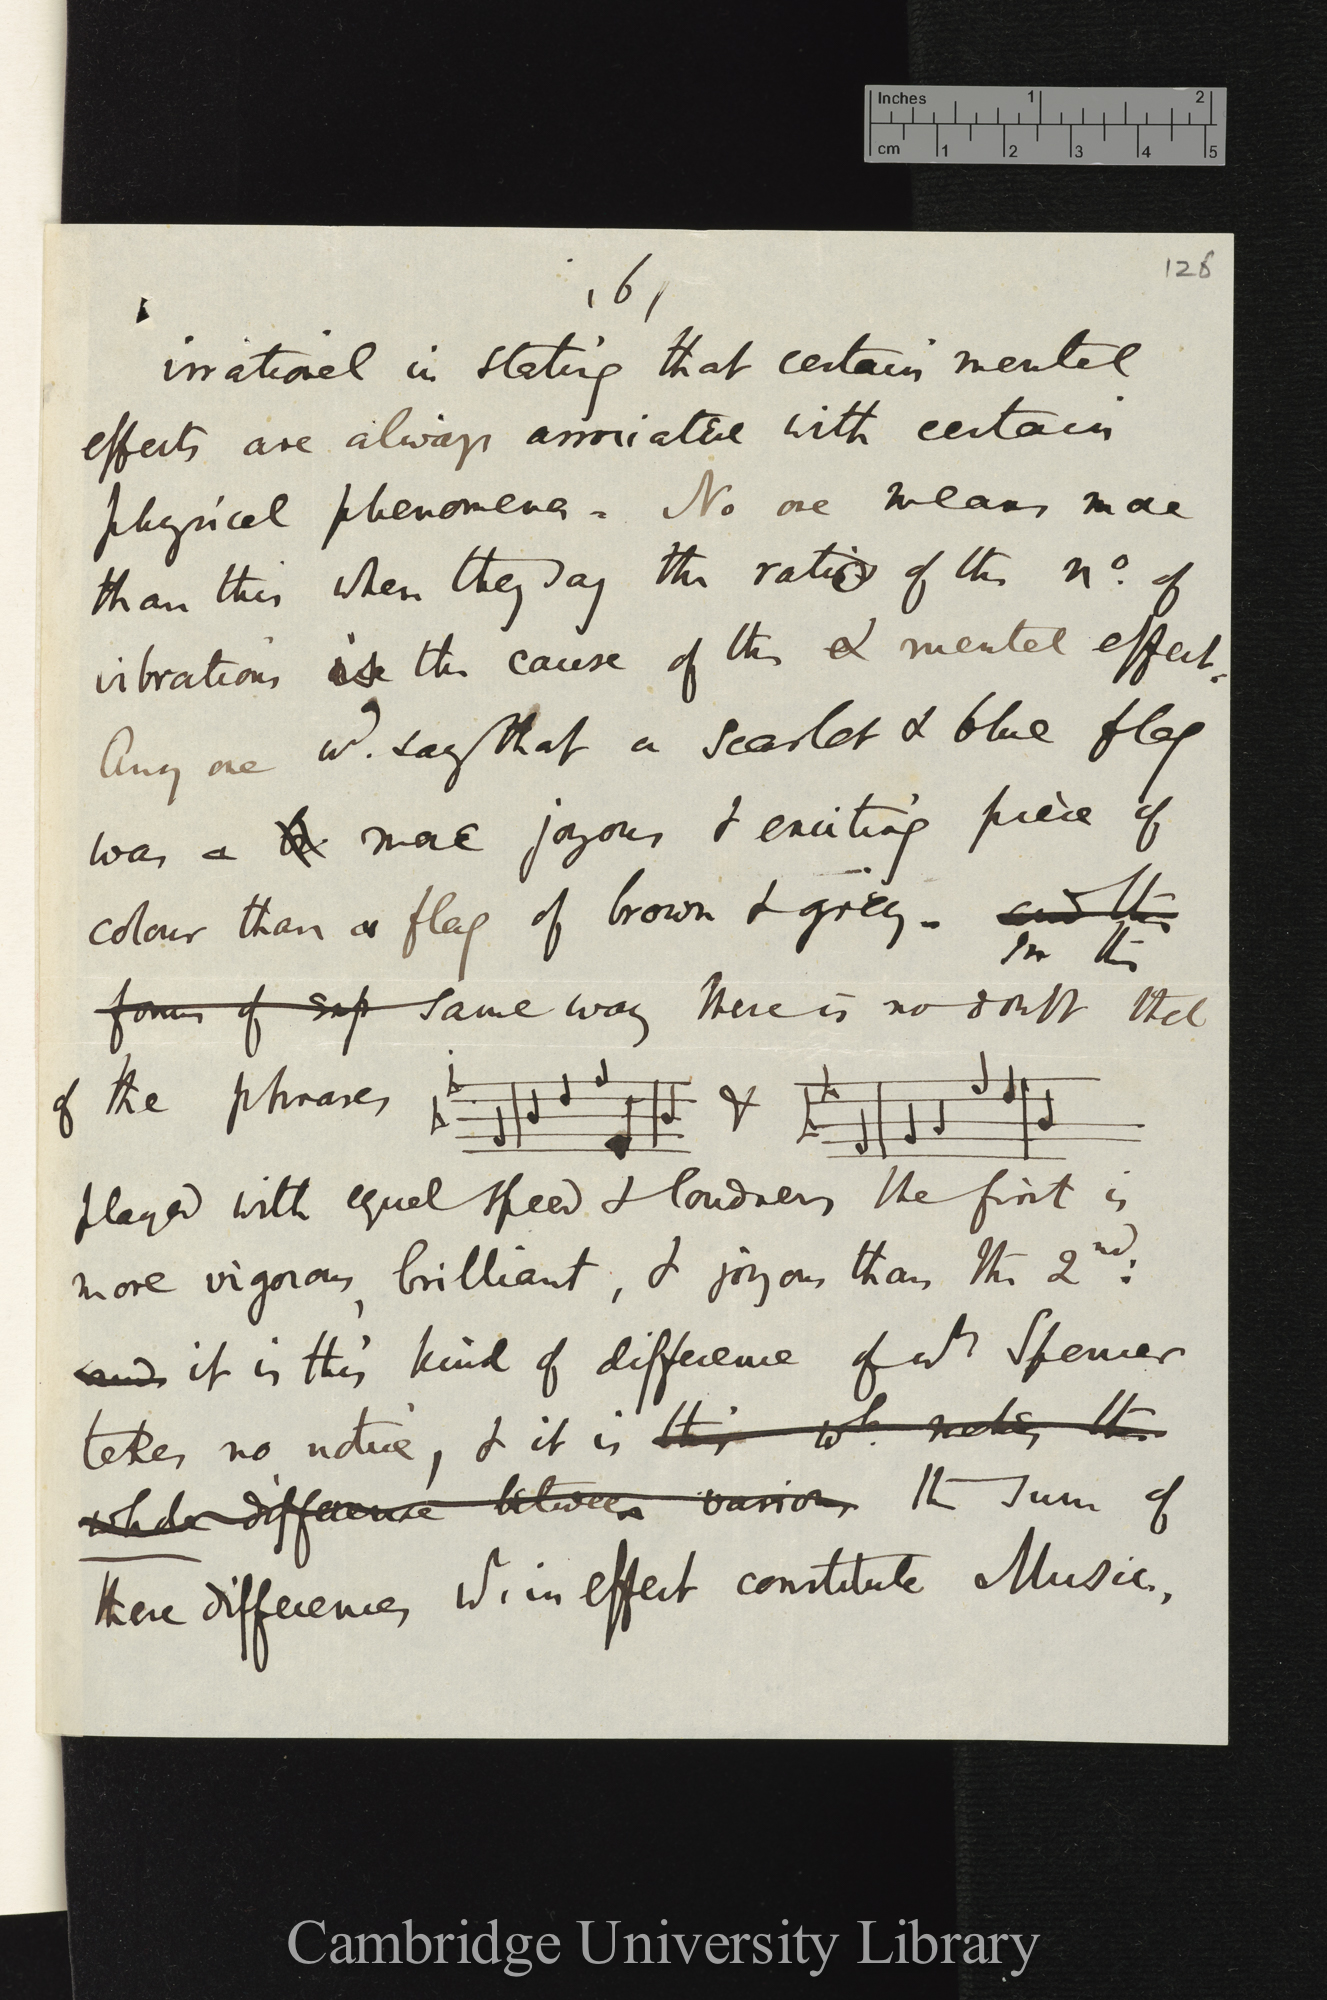 Inches 1 2
cm 1 2 3 4 5
128
(6)
irrational in stating that certain mental
effects are always associated with certain
physical phenomena. No one means more
than this when they say the ratio of the nº. of
vibrations is the cause of the mental effect.
Any one wd. say that a scarlet & blue flag
was a more joyous & exciting piece of
colour than a flag of brown & grey. and the
In the
forms of sup same way there is no doubt that
of the phrases &
played with equal speed & loudness the first is
more vigorous, brilliant, & joyous than the 2nd:
and it is this kind of difference of wh Spencer
takes no notice, & it is this wh. makes the
whole difference between various the sum of
these differences wh. in effect constitute Music.
Cambridge University Library